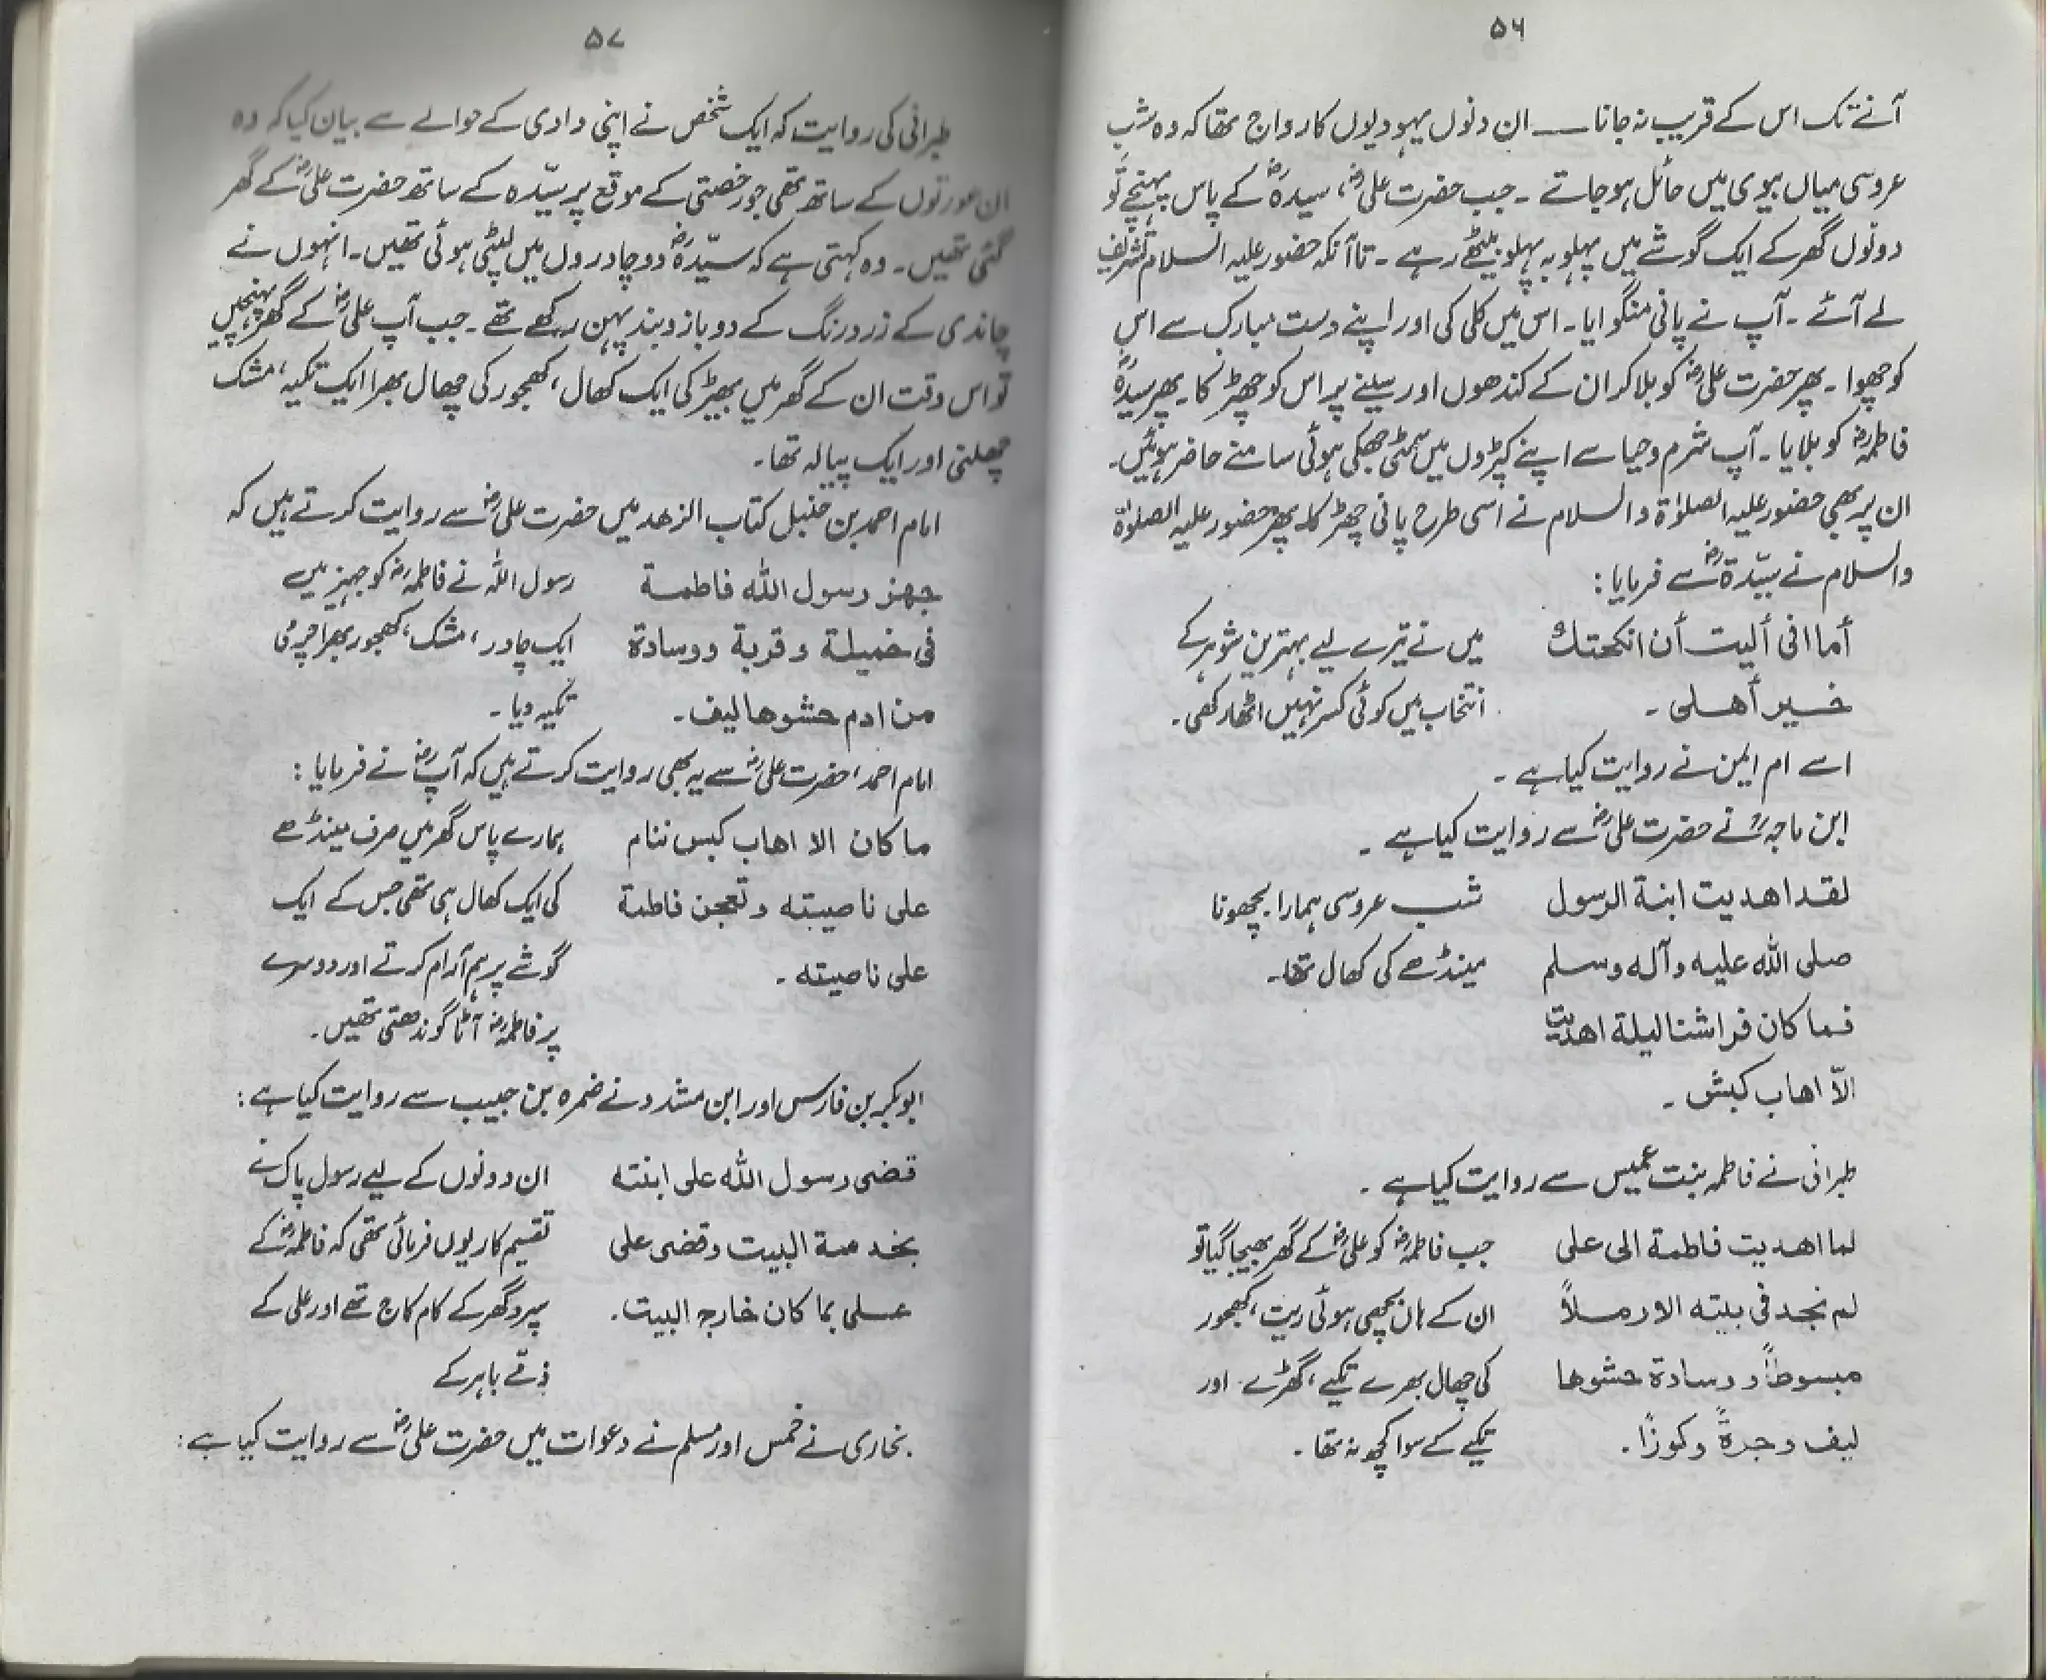 ۵۶
آنے تک اس کے قریب نہ جانا — ان دنوں یہودیوں کا رواج تھا کہ وہ شب
عروسی میاں بیوی میں حائل ہو جاتے ۔ جب حضرت علیؓ ، سیدہؓ کے پاس پہنچے تو
دونوں گھر کے ایک گوشے میں پہلو بہ پہلو بیٹھے رہے ۔ تاآنکہ حضور علیہ السلام تشریف
لے آئے ۔ آپ نے پانی منگوایا ۔ اس میں کلی کی اور اپنے دست مبارک سے اس
کو چھوا ۔ پھر حضرت علیؓ کو بلا کر ان کے کندھوں اور سینے پر اس کو چھڑکا ۔ پھر سیدہؓ
فاطمہؓ کو بلایا ۔ آپ شرم و حیا سے اپنے کپڑوں میں سمٹی جھکی ہوئی سامنے حاضر ہوئیں ۔
ان پر بھی حضور علیہ الصلوٰۃ والسلام نے اسی طرح پانی چھڑکا ۔ پھر حضور علیہ الصلوٰۃ
والسلام نے سیّدۃؓ سے فرمایا :
أما انی ألیت أن انکحتك میں نے تیرے لیے بہترین شوہر کے
خیر أھلی ۔ انتخاب میں کوئی کسر نہیں اٹھا رکھی ۔
اسے ام ایمن نے روایت کیا ہے ۔
ابن ماجہؒ نے حضرت علیؓ سے روایت کیا ہے ۔
لقد اھدیت ابنة الرسول شب عروسی ہمارا بچھونا
صلی اللہ علیه وآله وسلم مینڈھے کی کھال تھا ۔
فما کان فراشنا لیلة اھدیت
الاّ اھاب کبش ۔
طبرانی نے فاطمہ بنت عمیس سے روایت کیا ہے ۔
لما اھدیت فاطمة الی علی جب فاطمہؓ کو علیؓ کے گھر بھیجا گیا تو
لم نجد فی بیته الا رملاً ان کے ہاں بچھی ہوئی ریت ، کھجور
مبسوطاً و وسادة حشوھا کی چھال بھرے تکیے ، گھڑے اور
لیف و جرةً وکوزاً ۔ تکیے کے سوا کچھ نہ تھا ۔
۵۷
طبرانی کی روایت کہ ایک شخص نے اپنی دادی کے حوالے سے بیان کیا کہ وہ
ان عورتوں کے ساتھ تھی جو رخصتی کے موقع پر سیّدہ کے ساتھ حضرت علیؓ کے گھر
گئی تھیں ۔ وہ کہتی ہے کہ سیّدہؓ دو چادروں میں لپٹی ہوئی تھیں ۔ انہوں نے
چاندی کے زرد رنگ کے دو بازوبند پہن رکھے تھے ۔ جب آپ علیؓ کے گھر پہنچیں
تو اس وقت ان کے گھر میں بھیڑ کی ایک کھال ، کھجور کی چھال بھرا ایک تکیہ ، مشک
چھلنی اور ایک پیالہ تھا ۔
امام احمد بن حنبل کتاب الزھد میں حضرت علیؓ سے روایت کرتے ہیں کہ
جھز رسول اللہ فاطمة رسول اللہ نے فاطمہؓ کو جہیز میں
فی خمیلة و قربة و وسادة ایک چادر ، مشک ، کھجور بھرا چرمی
من ادم حشوھا لیف ۔ تکیہ دیا ۔
امام احمد ، حضرت علیؓ سے یہ بھی روایت کرتے ہیں کہ آپؓ نے فرمایا :
ما کان الا اھاب کبس ننام ہمارے پاس گھر میں صرف مینڈھے
علی ناصیته و تعجن فاطمة کی ایک کھال ہی تھی جس کے ایک
علی ناصیته ۔ گوشے پر ہم آرام کرتے اور دوسرے
پر فاطمہؓ آٹا گوندھتی تھیں ۔
ابوبکر بن فارس اور ابن مسدد نے ضمرہ بن حبیب سے روایت کیا ہے :
قضی رسول اللہ علی ابنته ان دونوں کے لیے رسول پاک نے
بخدمة البیت وقضی علی تقسیم کار یوں فرمائی تھی کہ فاطمہؓ کے
علی بما کان خارج البیت ۔ سپرد گھر کے کام کاج تھے اور علی کے
ذمّے باہر کے
بخاری نے خمس اور مسلم نے دعوات میں حضرت علیؓ سے روایت کیا ہے :